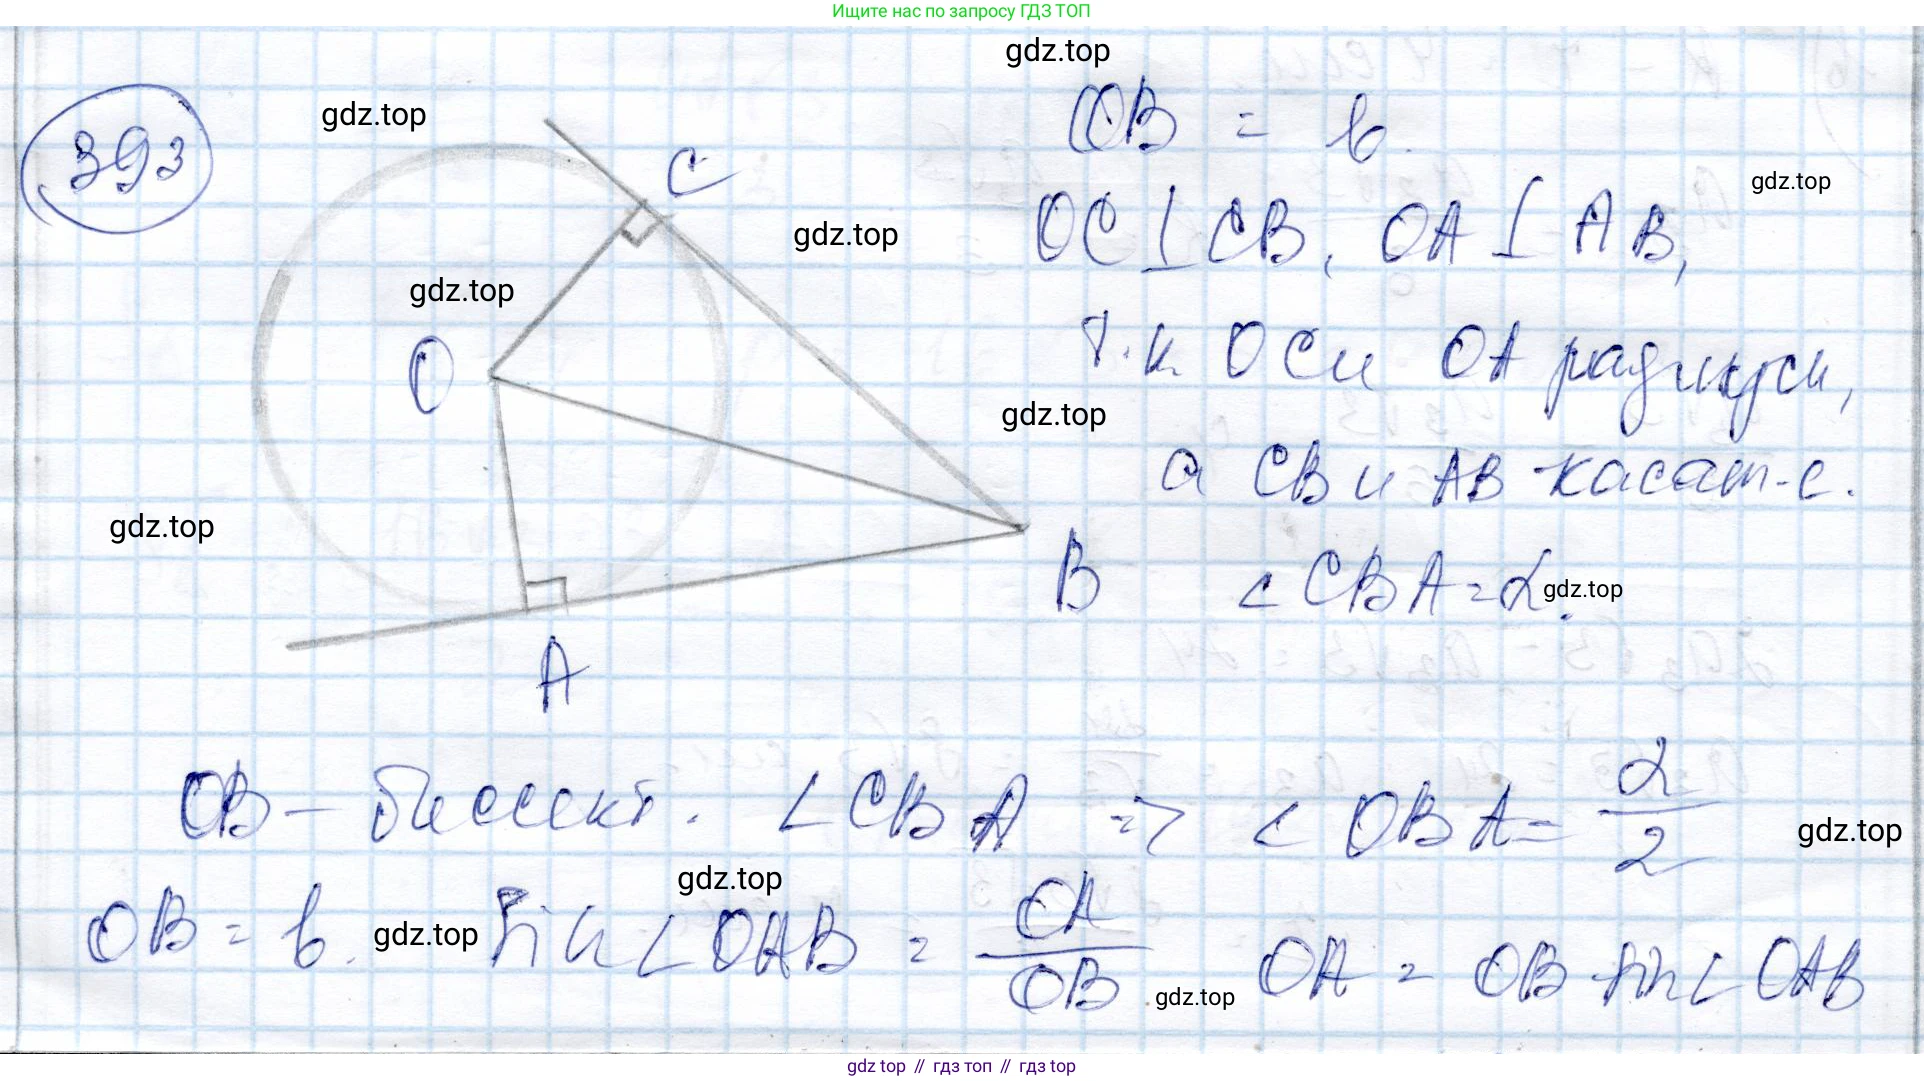 Ищите нас по запросу ГДЗ ТОП
gdz.top
393
gdz.top
C
OB = b.
gdz.top
OC ⊥ CB, OA ⊥ AB,
gdz.top
gdz.top
O
т.к OC и OA радиуси,
gdz.top
а CB и AB - касат-е.
gdz.top
B
∠CBA = α.
gdz.top
A
OB - биссект. ∠CBA => ∠OBA = α/2
gdz.top
OB = b.
gdz.top
sin∠OAB = OA/OB
gdz.top
gdz.top
OA = OB · sin∠OAB
gdz top // гдз топ // гдз top